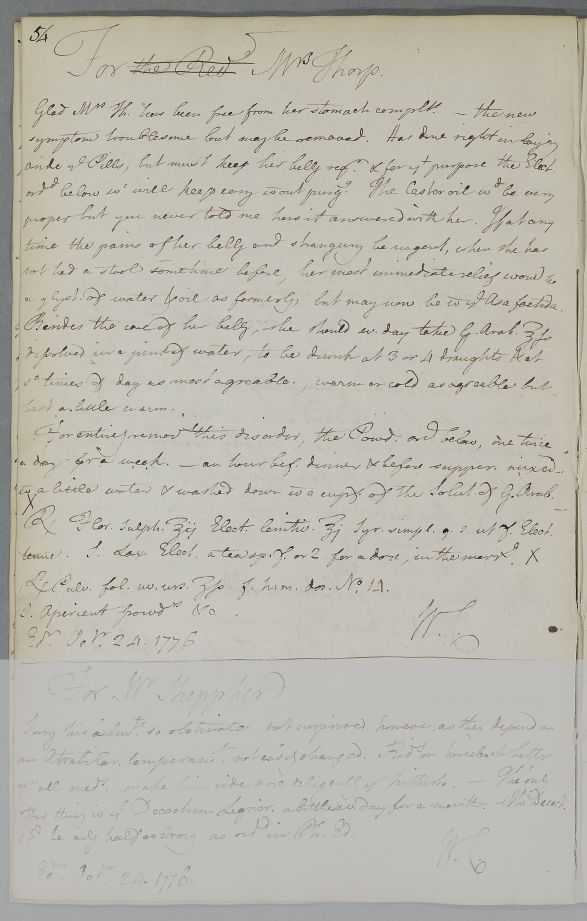 54
For the Revd Mrs Thorp.
Glad Mrs Th. has been free from her stomach complts. — the new
symptom troublesome but may be removed. Has done right in laying
aside ye Pills, but must keep her belly reg. & for yt purpose the Elect.
ordd below wh will keep easy wtout purg. The Castor oil wd be very
proper but you never told me how it answered with her. If at any
time the pains of her belly and strangury be urgent, when she has
not had a stool sometime before, her most immediate relief would be
a glyst. of water & oil as formerly, but may now be wt Asafoetida.
Besides the care of her belly, she should ev. day take G. Arab. ʒfs
dissolved in a pint of water, to be drunk at 3 or 4 draughts & at
se times of day as most agreable, warm or cold as agreable but
best a little warm.
For entirely remov this disorder, the Powd. ord below, one twice
a day for a week. — an hour bef. dinner & before supper. mixed
in a little water & washed down wt a cup of the Solut. of G. Arab.
X
Rx Flor. sulph. ʒij Elect. lenitiv. ʒj Syr. simpl. q. s. ut f. Elect.
tenue. S. Lax. Elect. a teasp. f. or 2 for a dose, in the morng. X
Rx Pulv. fol. uv. urs. ʒfs f. him. dos. No. 14.
S. Aperient powdrs &c.
W. C.
Edr. Octr. 24. 1776
For Mr Sheppherd.
Sorry his ailmts so obstinate not surprised however as they depend on
an Atrabilar. temperamt. not easily changed. Ridg on horseback better
yn all medn. make him ride more diligently yn hitherto. — The only
other thing is ye Decoctum Lignor. a bottle a day for a month. The Decoct.
shd be only half as strong as ord in Ph. Ed.
W. C.
Edr. Octr. 24. 1776.